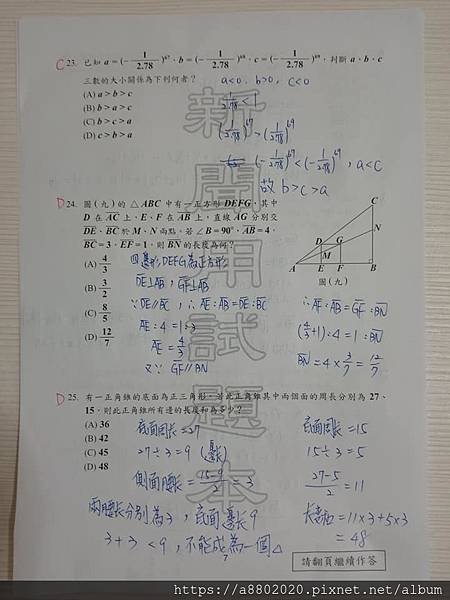 C 23. 已知 a = (-1/2.78)^67、b = (-1/2.78)^68、c = (-1/2.78)^69，判斷 a、b、c
三數的大小關係為下列何者？ a<0, b>0, c<0
(A) a > b > c
(B) b > a > c
(C) b > c > a
(D) c > b > a
1/2.78 < 1
(1/2.78)^67 > (1/2.78)^69
(-1/2.78)^67 < (-1/2.78)^69, a<c
故 b>c>a
D 24. 圖(九)的 △ABC 中有一正方形 DEFG，其中
D 在 AC 上，E、F 在 AB 上，直線 AG 分別交
DE、BC 於 M、N 兩點。若∠B=90°，AB=4，
BC=3，EF=1，則 BN 的長度為何？
(A) 4/3
(B) 3/2
(C) 8/5
(D) 12/7
四邊形DEFG為正方形
DE⊥AB, GF⊥AB
∵DE∥BC, ∴AE:AB=DE:BC
AE:4=1:3
AE=4/3
又∵ GF∥BN
C
D
G
N
M
A
E
F
B
圖(九)
∴AF:AB=GF:BN
(4/3+1):4=1:BN
BN=4×3/7=12/7
D 25. 有一正角錐的底面為正三角形，若此正角錐其中兩個面的周長分別為 27、
15，則此正角錐所有邊的長度和為多少？
(A) 36
(B) 42
(C) 45
(D) 48
底面周長=27
27÷3=9 (邊長)
側面腰長=(15-9)/2=3
兩腰長分別為3, 底面邊長9
3+3<9, 不能成為一個△
底面周長=15
15÷3=5
(27-5)/2=11
=11×3+5×3
=48
請翻頁繼續作答
7
新聞用試題本
https://a8802020.pixnet.net/album